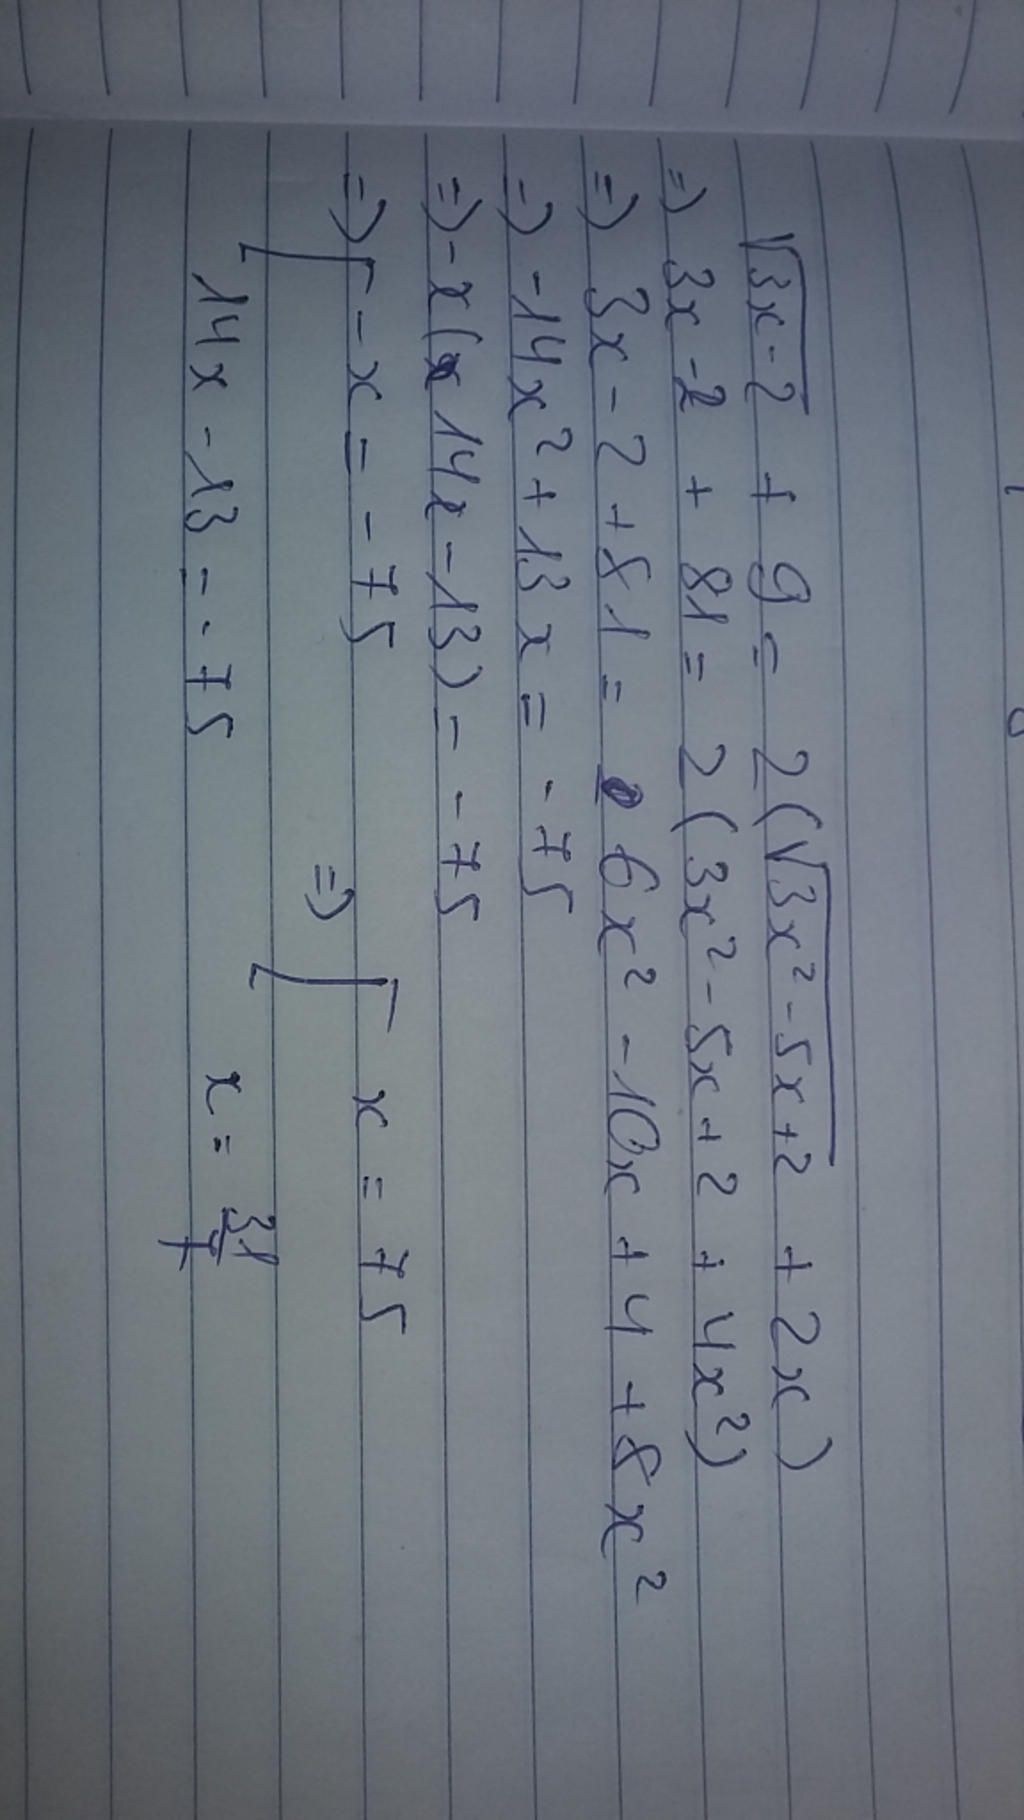 √3x-2 + 9 = 2(√3x²-5x+2 + 2x)
=) 3x-2 + 81 = 2(3x²-5x+2 + 4x²)
=) 3x-2+81 = 6x²-10x+4+8x²
=) -14x²+13x = -75
=) -x(14x-13) = -75
=) [ -x = -75 =) [ x = 75
14x-13 = -75 x = 31/7